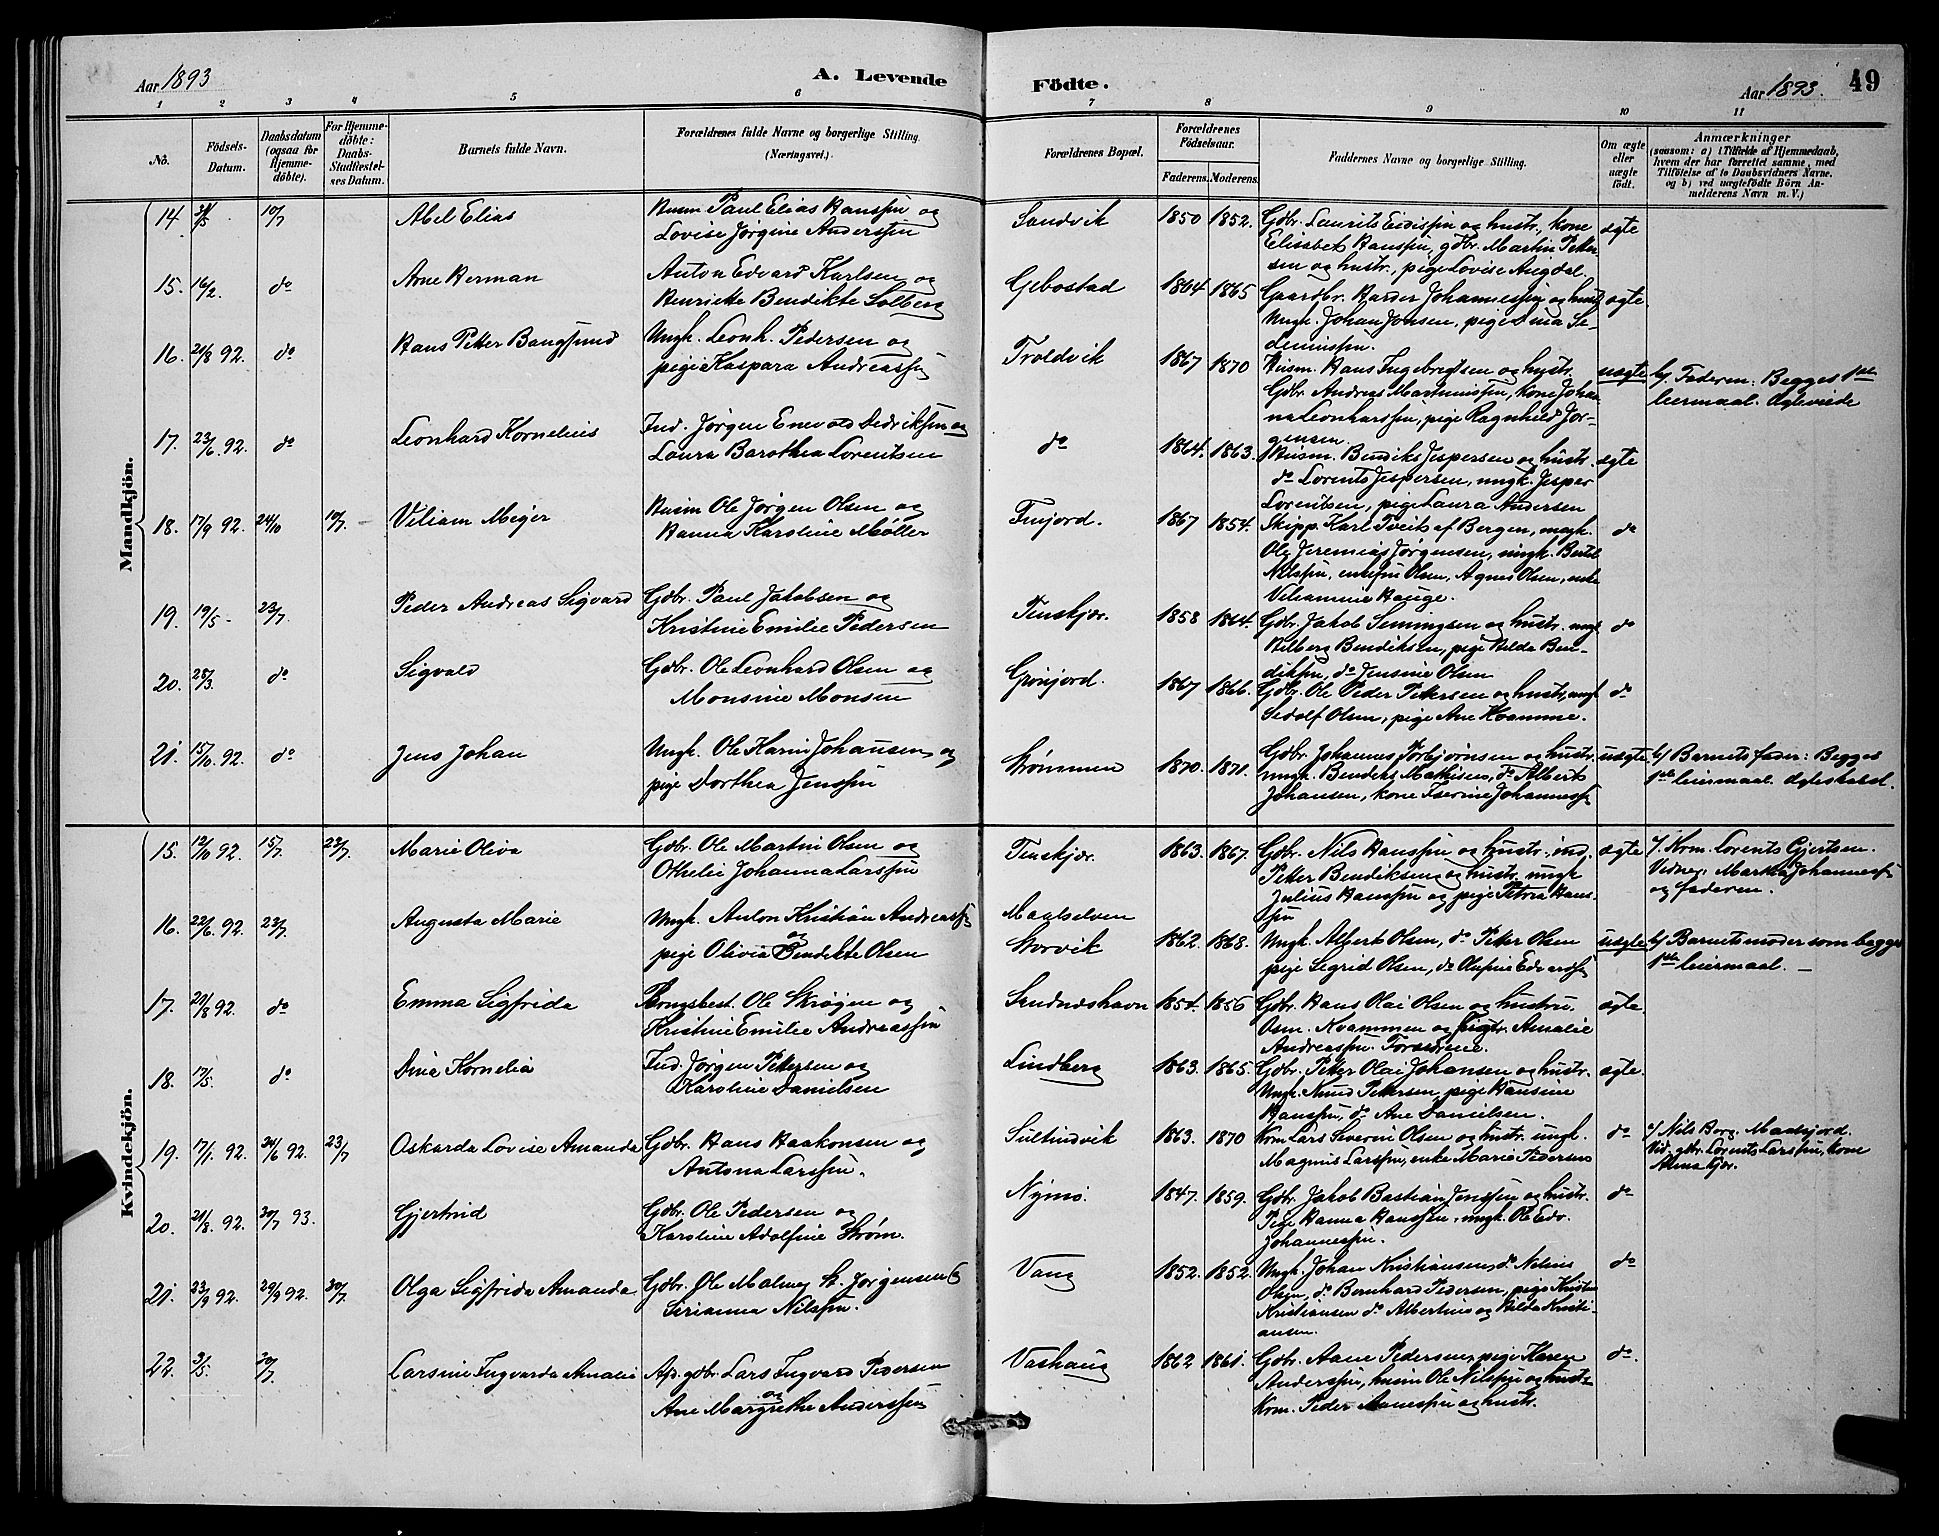 Aar 1893
A. Levende
Födte.
Aar 1893.
49
1 2 3 4 5 6 7 8 9 10 11
No.
Födsels-Datum.
Daabsdatum (ogsaa for Hjemme-döbte).
For Hjemme-döbte: Daabs-Stadfæstel-ses Datum.
Barnets fulde Navn.
Forældrenes fulde Navne og borgerlige Stilling.
(Næringsvei.)
Forældrenes Bopæl.
Forældrenes Födselsaar.
Faderens. Moderens.
Faddernes Navne og borgerlige Stilling.
Om ægte eller uægte födt.
Anmærkninger
(saasom: a) i Tilfælde af Hjemmedaab,
hvem der har forrettet samme, med
Tilföielse af to Daabsvidners Navne.
og b) ved uægtefödte Börn An-
melderens Navn m. V.)
Mandkjön.
14. 10/7 Abel Elias
Husm Paul Elias Hanssen og
Lovise Jørgine Anderssen
Sandvik 1850 1852.
Gdbr. Laurits Eidissen og hustr., kone
Elisabet Hanssen, gdbr. Martin Petter-
sen og hustr., pige Lovise Angdal.
ægte
15. 16/2. do Arne Herman
Anton Edvard Karlsen og
Henriette Bendikte Solberg
Gebostad 1864 1865
Gaardbr. Harder Johannessen og hustr
Ungk. Johan Jonsen, pige Dina Se-
leniussen.
ægte
16. 21/8 92. do Hans Petter Bangsund
Ungk. Leonh. Pedersen og
pige Kaspara Andreassen
Troldvik 1867 1870
Husm. Hans Ingebregtsen og hustr.
Gdbr. Andreas Martinussen, kone Joha-
na Leonharssen, pige Ragnhild Jør-
gensen.
uægte
b/ Faderen: Begges 1ste
leiermaal.
17. 23/6. 92. do Leonhard Kornelius
Ind. Jørgen Enevold Dedriksen og
Laura Barothea Lorentsen
do 1864. 1863.
Husm. Bendiks Jespersen og hustr.
do Lorents Jespersen, ungk. Jesper
Lorentsen, pige Laura Andersen
ægte
18. 17/9 92. 24/10 10/7. Viliam Meyer
Husm Ole Jørgen Olsen og
Hanna Karoline Møller
Finjord. 1867 1854.
Skipp. Karl Tveits af Bergen, ungk.
Ole Jeremias Jørgensen, ungk. Bertel
Nilssen, Olsen, Agnes Olsen, enke
Viliamine Hauge.
do
19. 19/5 - 23/7. Peder Andreas Sigvard
Gdbr. Paul Jakobsen og
Kristine Emilie Pedersen
Tinskjær. 1858 1864.
Gdbr. Jakob Simingsen og hustr. ungk
Hilberg Bendiksen, pige Hilda Ben-
diksen, do Jensine Olsen
do
20. 25/3. do Sigvald
Gdbr. Ole Leonhard Olsen og
Monsine Monsen
Grønjord. 1867 1866.
Gdbr. Ole Peder Pettersen og hustr, ungk
Sedolf Olsen, pige Ane Kvamme.
do
21. 15/10. 92. do Jens Johan
Ungk. Ole Karin Johansen og
pige Dorthea Jenssen
Strømmen 1870. 1871.
Gdbr. Johannes Torbjørnsen og hustr
ungk. Bendiks Mathisen, do Alberts
Johansen, kone Iserine Johannessen
uægte
b/ Barnets fader: Begges
1ste leiermaal.
Kvindekjön.
15. 12/10 92. 15/7. 22/7. Marie Oliva
Gdbr. Ole Martin Olsen og
Othelie Johanna Larssen
Tinskjær. 1863. 1867.
Gdbr. Nils Hanssen og hustr., ind.
Petter Bendiksen og hustr. ungk
Julius Hanssen og pige Petra Hans-
sen
ægte
a/. Krm. Lorents Gjertsen.
Vidner: Martha Johannessen
og faderen.
16. 22/6. 92. 23/7. Augusta Marie
Ungk. Anton Kristian Andreassen
og
pige Olivia Bendikte Olsen
Maalselven
Storvik 1862. 1868.
Ungk. Albert Olsen, do Petter Olsen
pige Sigrid Olsen, do Olufine Edvardsen
uægte
b/ Barnets moder som begges
1ste leiermaal. -
17. 29/8 92. do Emma Sigfrida
Brugsbest. Ole Skrøgen og
Kristine Emilie Andreassen
Sandnæshavn 1854. 1856
Gdbr. Hans Olai Olsen og hustru.
Osm. Kvammen og hustr. Amalie
Andreassen. Forældrene.
ægte.
18. 17/5. do Dina Kornelia
Ind. Jørgen Pettersen og
Karoline Danielsen
Lindberg 1863. 1865.
Gdbr. Peter Olai Johansen og hustr.
Ungk. Knud Pettersen, pige Hansine
Hanssen, do Ane Danielsen.
ægte.
19. 17/1. 92. 24/6 92. 23/7 Oskarda Lovise Amanda
Gdbr. Hans Haakonsen og
Antona Larssen.
Sultindvik 1863. 1870
Krm Lars Severin Olsen og hustr. ungk.
Magnus Larssen, enke Marie Pedersen
do
a/ Nils Borg. Maasjord.
Vid. gbr. Lorents Larssen, kone
Alma Gjør.
20. 21/8. 92. 30/7 93. Gjertrud
Gdbr. Ole Pedersen og
Karoline Adolfine Strøm.
Nymo. 1847. 1859.
Gdbr. Jakob Bastian Jenssen og hustr.
Pige Hanna Hanssen, ungk. Ole Edv.
Johannessen.
do
21. 23/9 92. 29/9 92. 30/7. Olga Sigfrida Amanda
Gdbr. Ole Malmey St. Jørgensen &
Serianna Nilssen.
Vang 1852. 1852.
Ungk. Johan Kristiansen, do Nelius
Olsen, do Bernhard Pedersen, pige Kristine
Kristiansen do Albertine og Hilda Kristi-
ansen.
do
22. 2/5. 30/7. Larsine Ingvarda Amalie
Afs. gdbr. Lars Ingvard Pedersen
og
Ane Margrethe Anderssen
Vashaug 1862 1861.
Gdbr. Aane Pedersen, pige Karen
Anderssen, husm Ole Nilssen og hustr.
Krm. Peder Aanessen og hustr.
do.